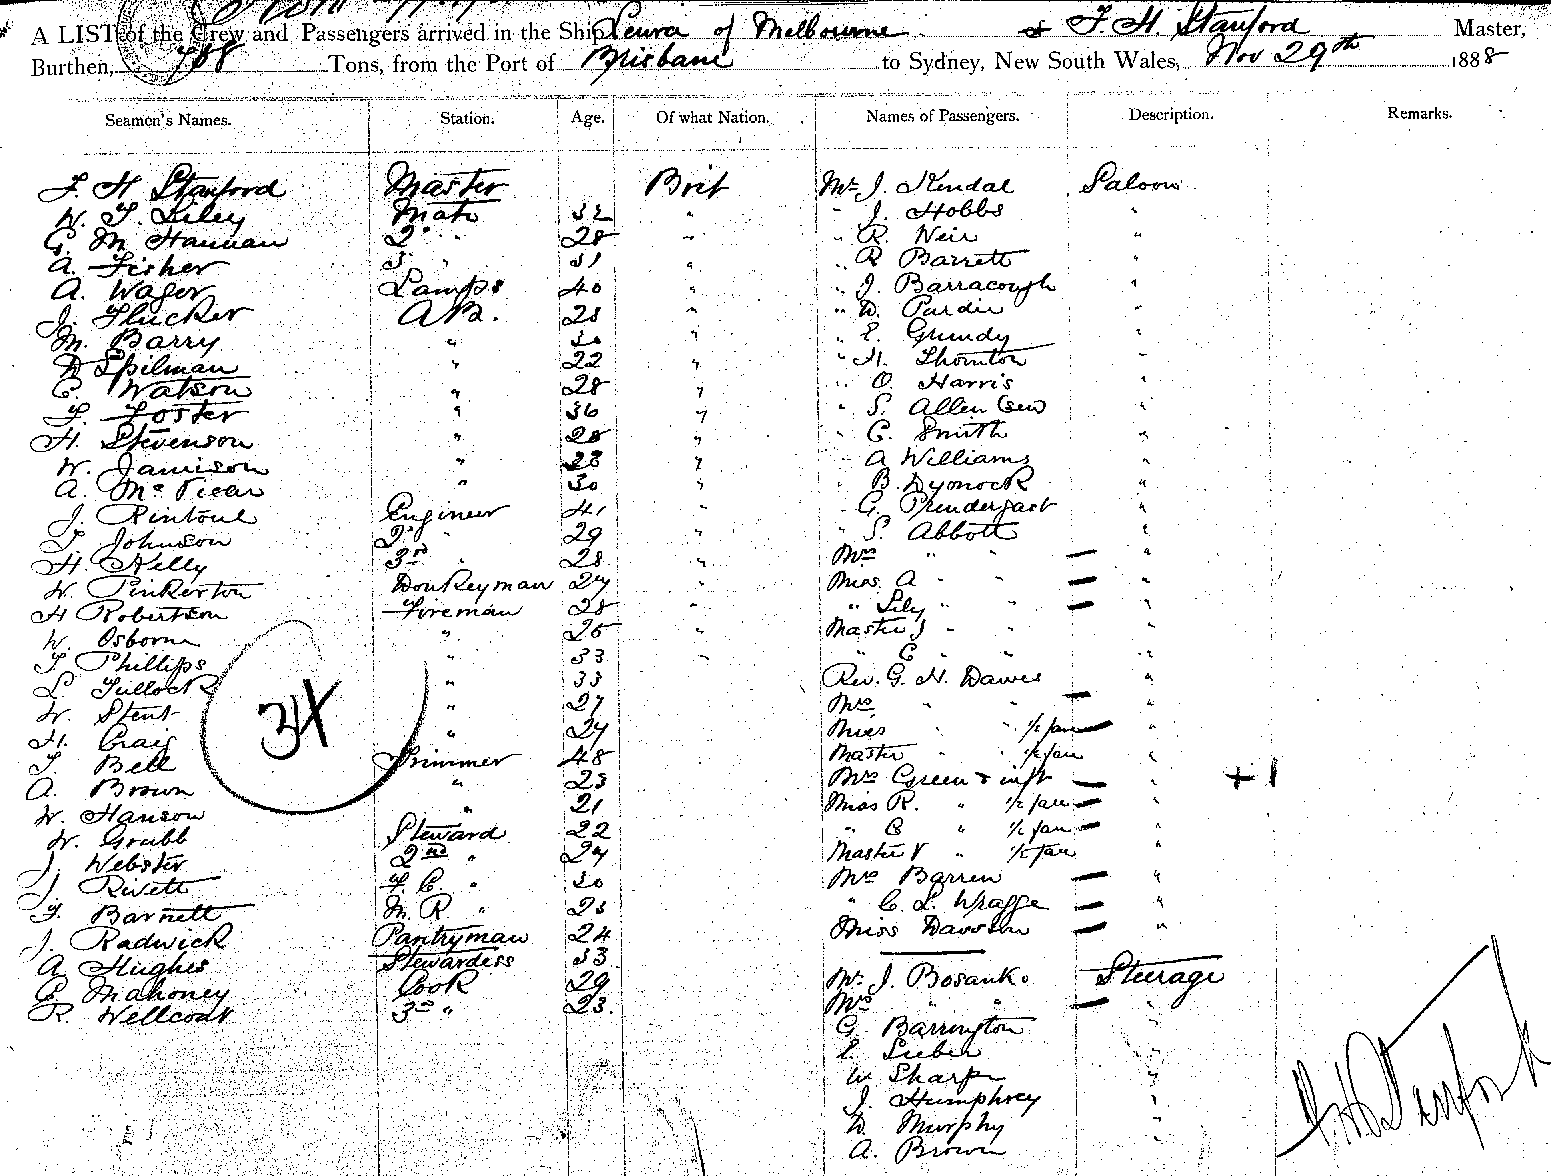 A LIST of the Crew and Passengers arrived in the Ship Leura of Melbourne F. H. Stanford Master,
Burthen, 708 Tons, from the Port of Brisbane to Sydney, New South Wales, Nov 29th 1888
Seamen's Names. Station. Age. Of what Nation. Names of Passengers. Description. Remarks.
F. H Stanford Master Brit Mr J. Kendal Saloon
W. T. Liley Mate 32 " " J. Hobbs "
G. M Hannan 2d " 28 " " R. Weir "
A. Fisher 3 " 31 " " R Barrett "
A. Wager Lamps 40 " " J. Barracough "
J. Flucker A.B. 28 " " D. Pardie "
M. Barry " 30 " " E. Grundy "
D Spilman " 22 " " H. Thornton "
C. Watson " 28 " " O. Harris "
F. Foster " 36 " " S. Allen (sen "
H. Stevenson " 28 " " C. Smith "
W. Jamison " 28 " " A Williams "
A. McVicar " 30 " " B. Dymock "
J. Rintoul Engineer 41 " " G. Prendergast "
T. Johnson 2d " 29 " " S. Abbott "
H. Kelly 3rd " 28 " Mrs " " "
W. Pinkerton Donkeyman 27 " Miss A " " "
H Robertson Fireman 28 " " Lily " " "
W. Osborne " 26 " Master J " " "
T Phillips " 33 " " C " " "
L. Tullock " 33 Rev. G. H. Dawes "
W. Stent " 27 Mrs " " "
H. Craig " 27 Miss " " 1/2 fare "
T. Bell Trimmer 48 Master " " 1/2 fare "
A. Brown " 23 Mrs Green & inft " + 1
W. Hanson " 21 Miss R. " 1/2 fare "
W. Grubb Steward 22 " C " 1/2 fare "
J. Webster 2nd " 27 Master V " 1/2 fare "
J. Rivett F. C. " 30 Mrs Barren "
F. Barnett M. R " 23 " C. L. Wragge "
J. Radwick Pantryman 24 Miss Dawson "
A Hughes Stewardess 33
C Mahoney Cook 29 Mr J. Bosanko Steerage
R. Wellcoat 3rd " 23. Mrs " " "
G. Barrington "
E. Lieben "
W Sharpe "
J. Humphrey "
D. Murphy "
A. Brown
34
F. H. Stanford